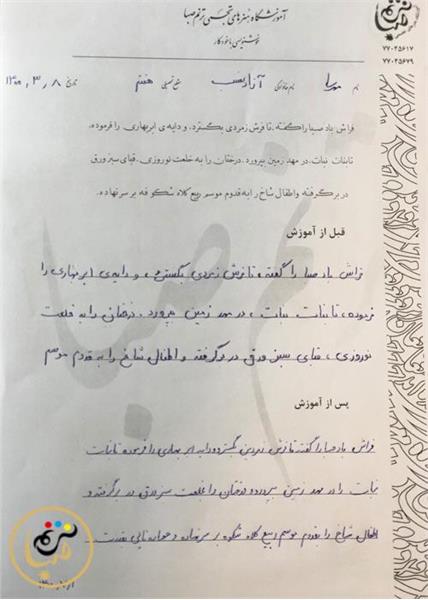 آموزشگاه هنرهای تجسمی ترنم صبا
خوشنویسی با خودکار
ترنم صبا
۷۷۰۴۵۶۱۷
۷۷۰۴۵۶۷۹
نام نام خانوادگی آزاد سطح تحصیلی هفتم تاریخ ۱۴۰۰٫۳٫۸
فراش باد صبا را گفته، تا فرش زمردی بگسترد، و دایه‌ی ابر بهاری را فرموده،
تا بنات نبات، در مهد زمین بپرورد، درختان را به خلعت نوروزی، قبای سبز ورق
در بر گرفته و اطفال شاخ را به قدوم موسم ربیع کلاه شکوفه بر سر نهاده.
قبل از آموزش
فراش باد صبا را گفته، تا فرش زمردی بگستر، و دایه‌ی ابر بهاری را
فرموده، تا بنات نبات، در مهد زمین بپرورد، درختان را به خلعت
نوروزی، قبای سبز ورق در بر گرفته و اطفال شاخ را به قدوم موسم
پس از آموزش
فراش باد صبا را گفته تا فرش زمردین گسترد و دایه ابر بهاری را فرموده تا بنات
نبات را در مهد زمین بپرورد و درختان را خلعت سبز ورق در بر گرفته و
اطفال شاخ را بقدوم موسم ربیع کلاه شکوفه بر سر نهاده و
ترنم صبا